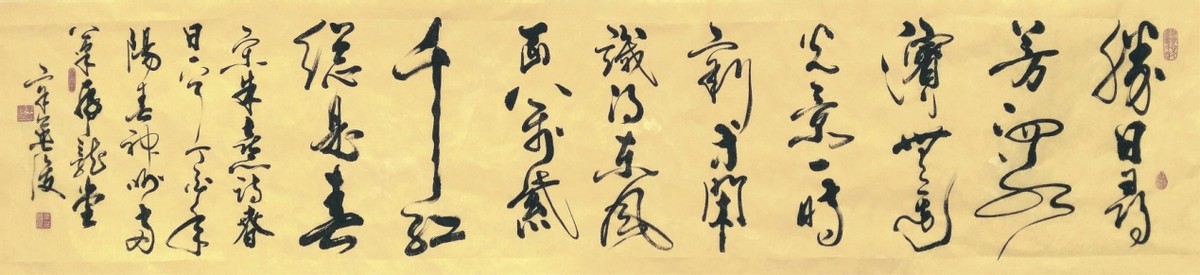 勝日尋
芳泗水
濱無邊
光景一時
新等閒
識得東風
面萬紫
千紅
總是春
宋朱熹詩春
日一首丁酉年
陽春神州
龍堂